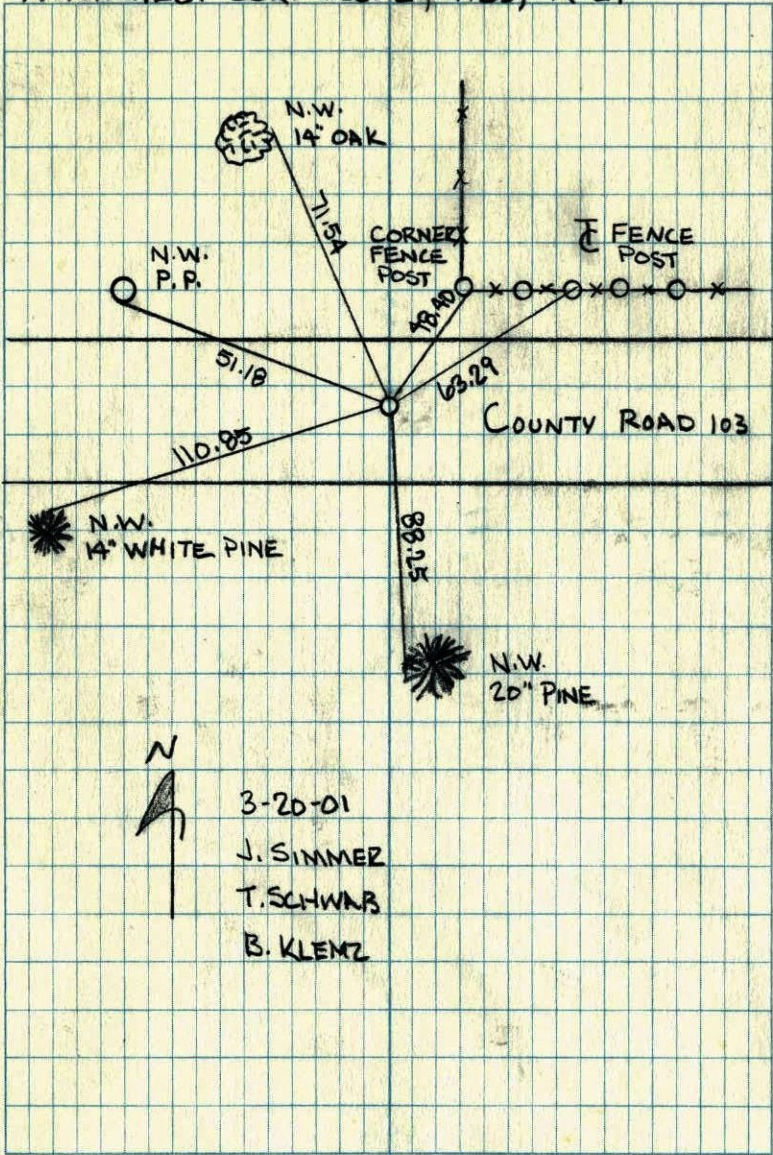 N.W.
14" OAK
71.54
CORNER
FENCE
POST
℄ FENCE
POST
N.W.
P.P.
48.40
51.18
63.29
COUNTY ROAD 103
110.85
N.W.
14" WHITE PINE
88.25
N.W.
20" PINE
N
3-20-01
J. SIMMER
T. SCHWAB
B. KLEMZ